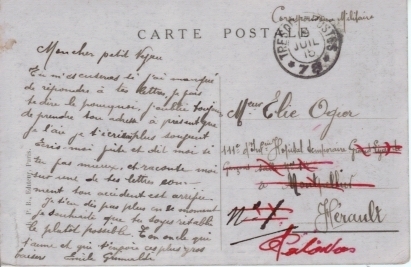 Correspondance Militaire
CARTE POSTALE
TRESOR ET POSTES
JUIL
15
* 78 *
Mon cher petit
Tu m'excuseras si j'ai manqué
de répondre à tes lettres, je puis
te dire le pourquoi, j'oublie toujours
de prendre ton adresse à présent que
je l'ai je t'écrirai plus souvent
Écris moi vite et dis moi si
tu vas mieux, et raconte moi
sur une de tes lettres com-
ment ton accident est arrivé.
Je t'en dis pas plus en ce moment
Je souhaite que tu soyes rétabli
le plutôt possible. Ton oncle qui
t'aime et qui t'envoie ses plus gros
baisers Emile
Mr Elie Ogier
111e d'Inf Hopital temporaire
Montpellier
n° 1
Hérault
Palavas